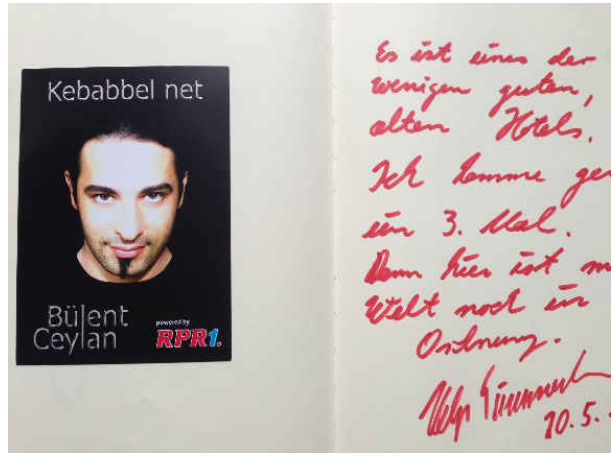 Kebabbel net
Bülent
Ceylan
powered by
RPR1.
Es ist eines der
wenigen guten,
alten Hotels.
Ich komme
ein 3. Mal.
Denn hier ist
Welt noch in
Ordnung.
10.5.